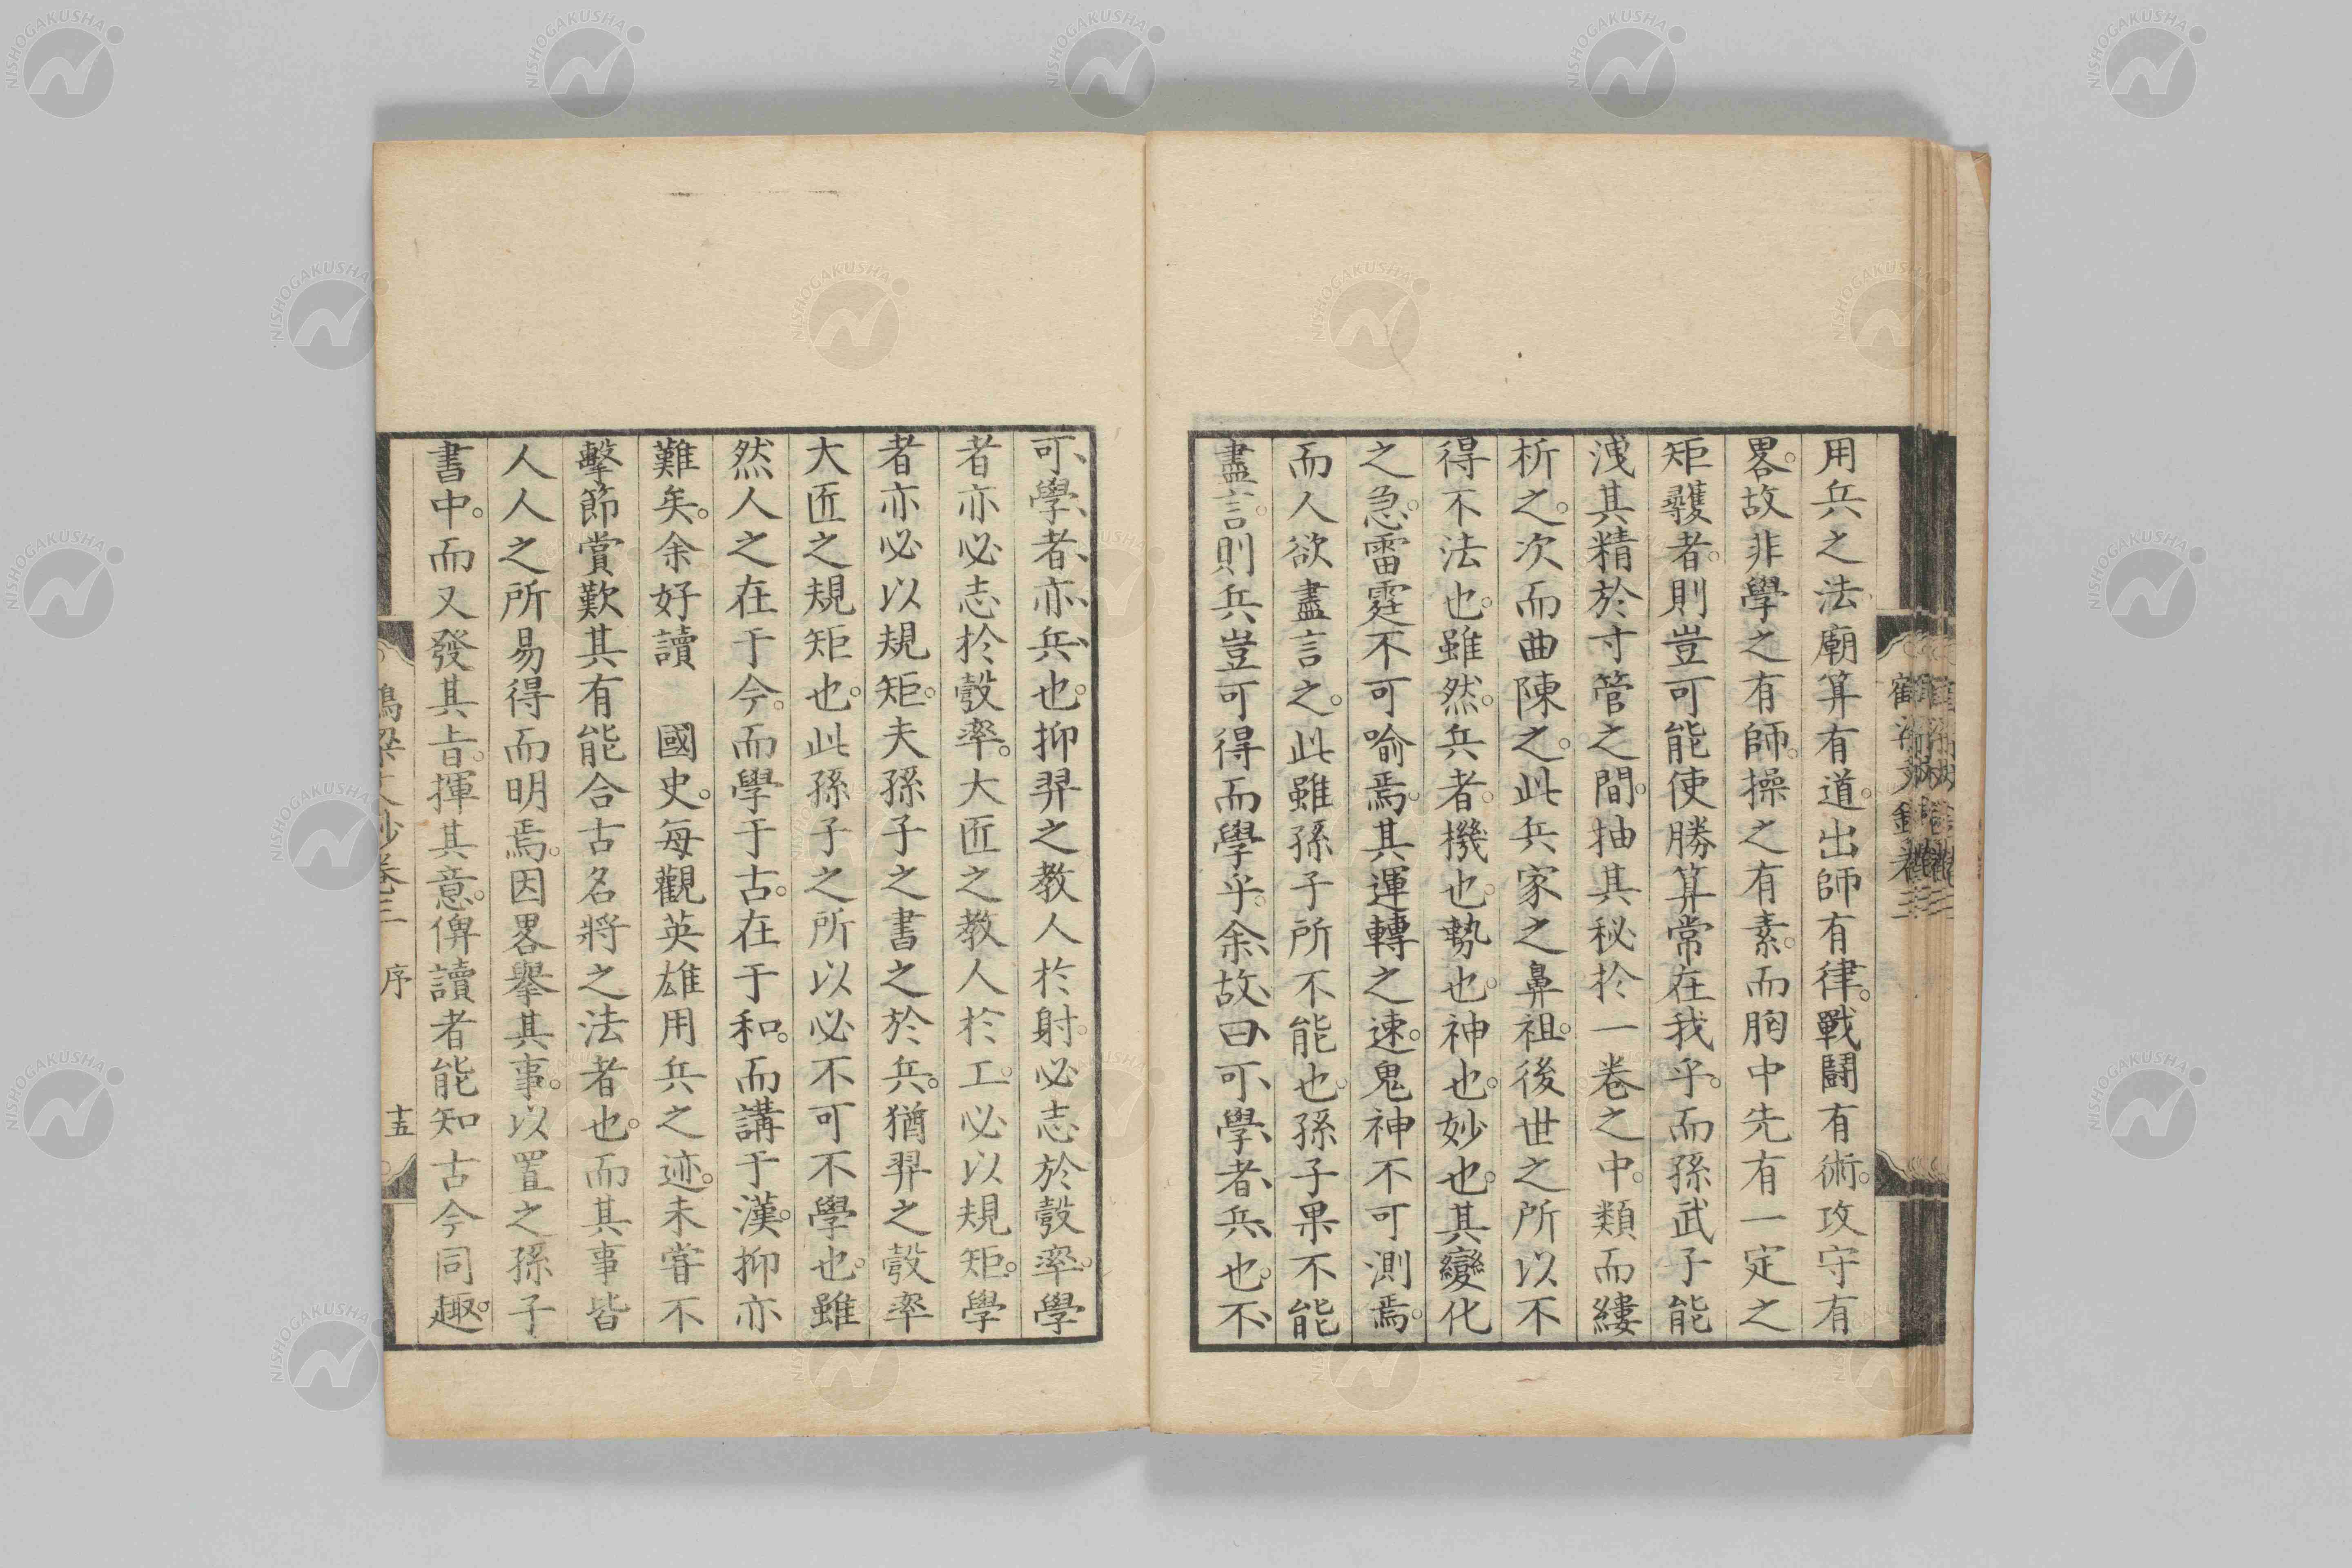 用兵之法廟算有道。出師有律。戰鬪有術。攻守有
畧。故非學之有師。操之有素。而胸中先有一定之
矩矱者。則豈可能使勝算常在我乎。而孫武子能
洩其精於寸管之間。抽其秘於一卷之中。類而縷
析之。次而曲陳之。此兵家之鼻祖。後世之所以不
得不法也。雖然。兵者。機也。勢也。神也。妙也。其變化
之急。雷霆不可喻焉。其運轉之速。鬼神不可測焉。
而人欲盡言之。此雖孫子所不能也。孫子果不能
盡言。則兵豈可得而學乎。余、故、曰、可、學、者、兵、也。不、
可、學、者、亦、兵、也。抑羿之教人於射。必志於彀率。學
者亦必志於彀率。大匠之教人於工。必以規矩。學
者亦必以規矩。夫孫子之書之於兵。猶羿之彀率
大匠之規矩也。此孫子之所以必不可不學也。雖
然人之在于今。而學于古。在于和。而講于漢。抑亦
難矣。余好讀 國史。每觀英雄用兵之迹。未嘗不
擊節賞歎其有能合古名將之法者也。而其事皆
人人之所易得而明焉。因畧擧其事。以置之孫子
書中。而又發其旨。揮其意。俾讀者能知古今同趣。
鶴梁文鈔卷三 序 十五
NISHOGAKUSHA